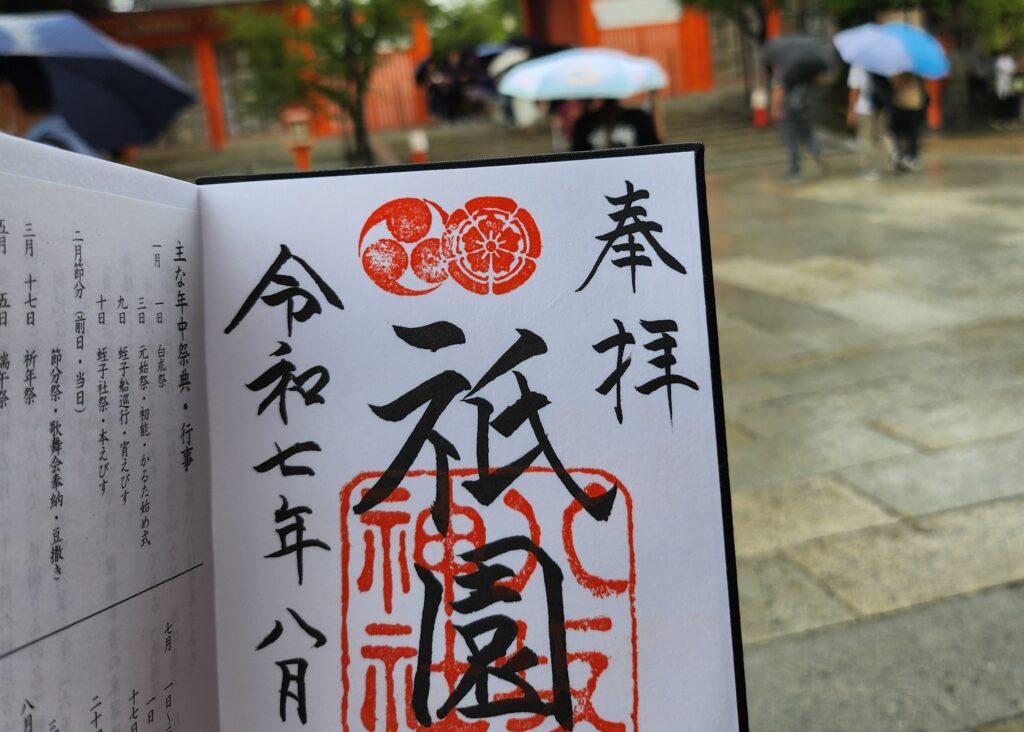 奉拝
祇園
八坂
神社
令和七年八月
主な年中祭典・行事
一月 一日 白朮祭
三日 元始祭・初能・かるた始め式
九日 蛭子船巡行・宵えびす
十日 蛭子社祭・本えびす
二月節分(前日・当日)
節分祭・歌舞会奉納・豆撒き
三月 十七日 祈年祭
五月 五日 端午祭
七月 一日~
一日
十七日
二十
八月